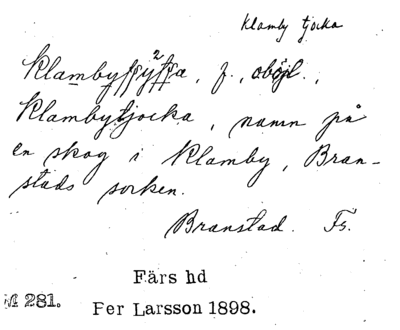 Klamby tjocka
f., oböjl.,
Klambytjocka, namn på
en skog i Klamby, Bran-
stads socken.
Branstad. Fs.
Färs hd
M 281. Per Larsson 1898.